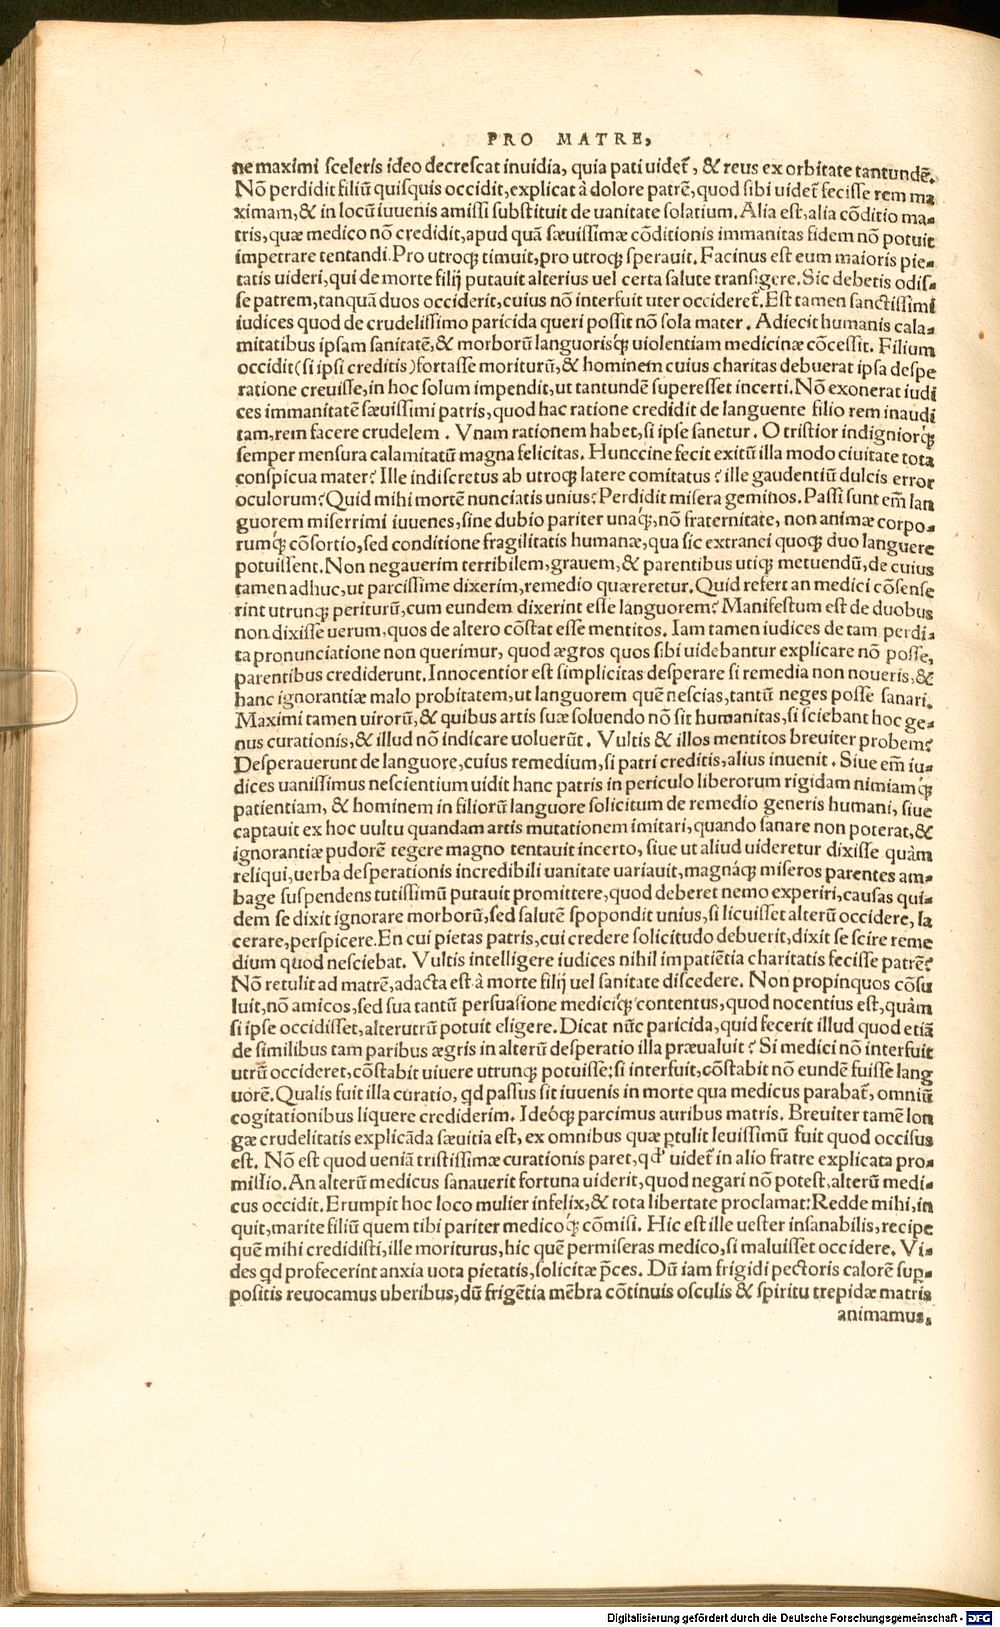 PRO MATRE,
ne maximi sceleris ideo decrescat inuidia, quia pati uidet᷑, & reus ex orbitate tantundẽ.
Nõ perdidit filiũ quisquis occidit, explicat à dolore patrẽ, quod sibi uidet᷑ fecisse rem ma
ximam, & in locũ iuuenis amissi substituit de uanitate solatium. Alia est, alia cõditio ma-
tris, quæ medico nõ credidit, apud quã sæuissimæ cõditionis immanitas fidem nõ potuit
impetrare tentandi. Pro utroq; timuit, pro utroq; sperauit. Facinus est eum maioris pie-
tatis uideri, qui de morte filij putauit alterius uel certa salute transigere. Sic debetis odis-
se patrem, tanquã duos occiderit, cuius nõ interfuit uter occideret᷑. Est tamen sanctissimi
iudices quod de crudelissimo paricida queri possit nõ sola mater. Adiecit humanis cala-
mitatibus ipsam sanitatẽ, & morborũ languorisq́; uiolentiam medicinæ cõcessit. Filium
occidit (si ipsi creditis) fortasse moriturũ, & hominem cuius charitas debuerat ipsa despe
ratione creuisse, in hoc solum impendit, ut tantundẽ superesset incerti. Nõ exonerat iudi
ces immanitatẽ sæuissimi patris, quod hac ratione credidit de languente filio rem inaudi
tam, rem facere crudelem. Vnam rationem habet, si ipse sanetur. O tristior indigniorq́;
semper mensura calamitatũ magna felicitas. Hunccine fecit exitũ illa modo ciuitate tota
conspicua mater? Ille indiscretus ab utroq; latere comitatus? ille gaudentiũ dulcis error
oculorum? Quid mihi mortẽ nunciatis unius? Perdidit misera geminos. Passi sunt em̃ lan
guorem miserrimi iuuenes, sine dubio pariter unaq́;, nõ fraternitate, non animæ corpo-
rumq́; cõsortio, sed conditione fragilitatis humanæ, qua sic extranei quoq; duo languere
potuissent. Non negauerim terribilem, grauem, & parentibus utiq; metuendũ, de cuius
tamen adhuc, ut parcissime dixerim, remedio quæreretur. Quid refert an medici cõsense
rint utrunq; periturũ, cum eundem dixerint esse languorem? Manifestum est de duobus
non dixisse uerum, quos de altero cõstat esse mentitos. Iam tamen iudices de tam perdi-
ta pronunciatione non querimur, quod ægros quos sibi uidebantur explicare nõ posse,
parentibus crediderunt. Innocentior est simplicitas desperare si remedia non noueris, &
hanc ignorantiæ malo probitatem, ut languorem quẽ nescias, tantũ neges posse sanari.
Maximi tamen uirorũ, & quibus artis suæ soluendo nõ sit humanitas, si sciebant hoc ge-
nus curationis, & illud nõ indicare uoluerũt. Vultis & illos mentitos breuiter probem?
Desperauerunt de languore, cuius remedium, si patri creditis, alius inuenit. Siue em̃ iu-
dices uanissimus nescientium uidit hanc patris in periculo liberorum rigidam nimiamq́;
patientiam, & hominem in filiorũ languore solicitum de remedio generis humani, siue
captauit ex hoc uultu quandam artis mutationem imitari, quando sanare non poterat, &
ignorantiæ pudorẽ tegere magno tentauit incerto, siue ut aliud uideretur dixisse quàm
reliqui, uerba desperationis incredibili uanitate uariauit, magnáq; miseros parentes am-
bage suspendens tutissimũ putauit promittere, quod deberet nemo experiri, causas qui-
dem se dixit ignorare morborũ, sed salutẽ spopondit unius, si licuisset alterũ occidere, la
cerare, perspicere. En cui pietas patris, cui credere solicitudo debuerit, dixit se scire reme
dium quod nesciebat. Vultis intelligere iudices nihil impatiẽtia charitatis fecisse patrẽ?
Nõ retulit ad matrẽ, adacta est à morte filij uel sanitate discedere. Non propinquos cõsu
luit, nõ amicos, sed sua tantũ persuasione mediciq́; contentus, quod nocentius est, quàm
si ipse occidisset, alterutrũ potuit eligere. Dicat nũc paricida, quid fecerit illud quod etiã
de similibus tam paribus ægris in alterũ desperatio illa præualuit? Si medici nõ interfuit
utrũ occideret, cõstabit uiuere utrunq; potuisse: si interfuit, cõstabit nõ eundẽ fuisse lang
uorẽ. Qualis fuit illa curatio, qd passus sit iuuenis in morte qua medicus parabat᷑, omniũ
cogitationibus liquere crediderim. Ideóq; parcimus auribus matris. Breuiter tamẽ lon
gæ crudelitatis explicãda sæuitia est, ex omnibus quæ ꝑtulit leuissimũ fuit quod occisus
est. Nõ est quod ueniã tristissimæ curationis paret, qđ uidet᷑ in alio fratre explicata pro-
missio. An alterũ medicus sanauerit fortuna uiderit, quod negari nõ potest, alterũ medi-
cus occidit. Erumpit hoc loco mulier infelix, & tota libertate proclamat: Redde mihi, in
quit, marite filiũ quem tibi pariter medicoq́; cõmisi. Hic est ille uester insanabilis, recipe
quẽ mihi credidisti, ille moriturus, hic quẽ permiseras medico, si maluisset occidere. Vi-
des qd profecerint anxia uota pietatis, solicitæ p̃ces. Dũ iam frigidi pectoris calorẽ sup-
positis reuocamus uberibus, dũ frigẽtia mẽbra cõtinuis osculis & spiritu trepidæ matris
animamus,
Digitalisierung gefördert durch die Deutsche Forschungsgemeinschaft - DFG